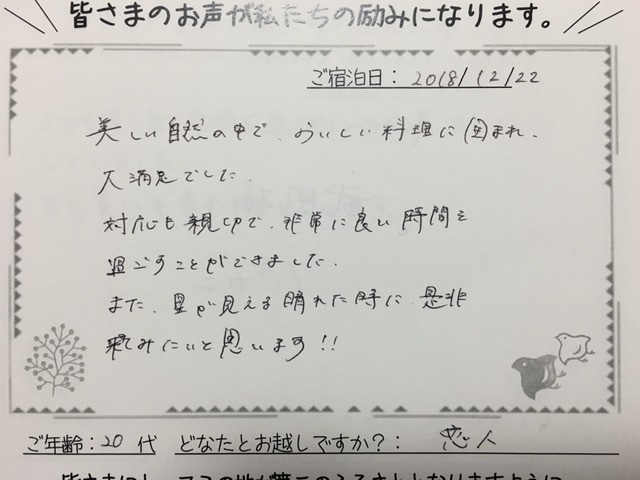 皆さまのお声が私たちの励みになります。
ご宿泊日：2018/12/22
美しい自然の中で、おいしい料理に囲まれ、
大満足でした。
対応も親切で、非常に良い時間を
過ごすことができました。
また、星が見える晴れた時に、是非
来てみたいと思います!!
ご年齢：20代 どなたとお越しですか？： 恋人